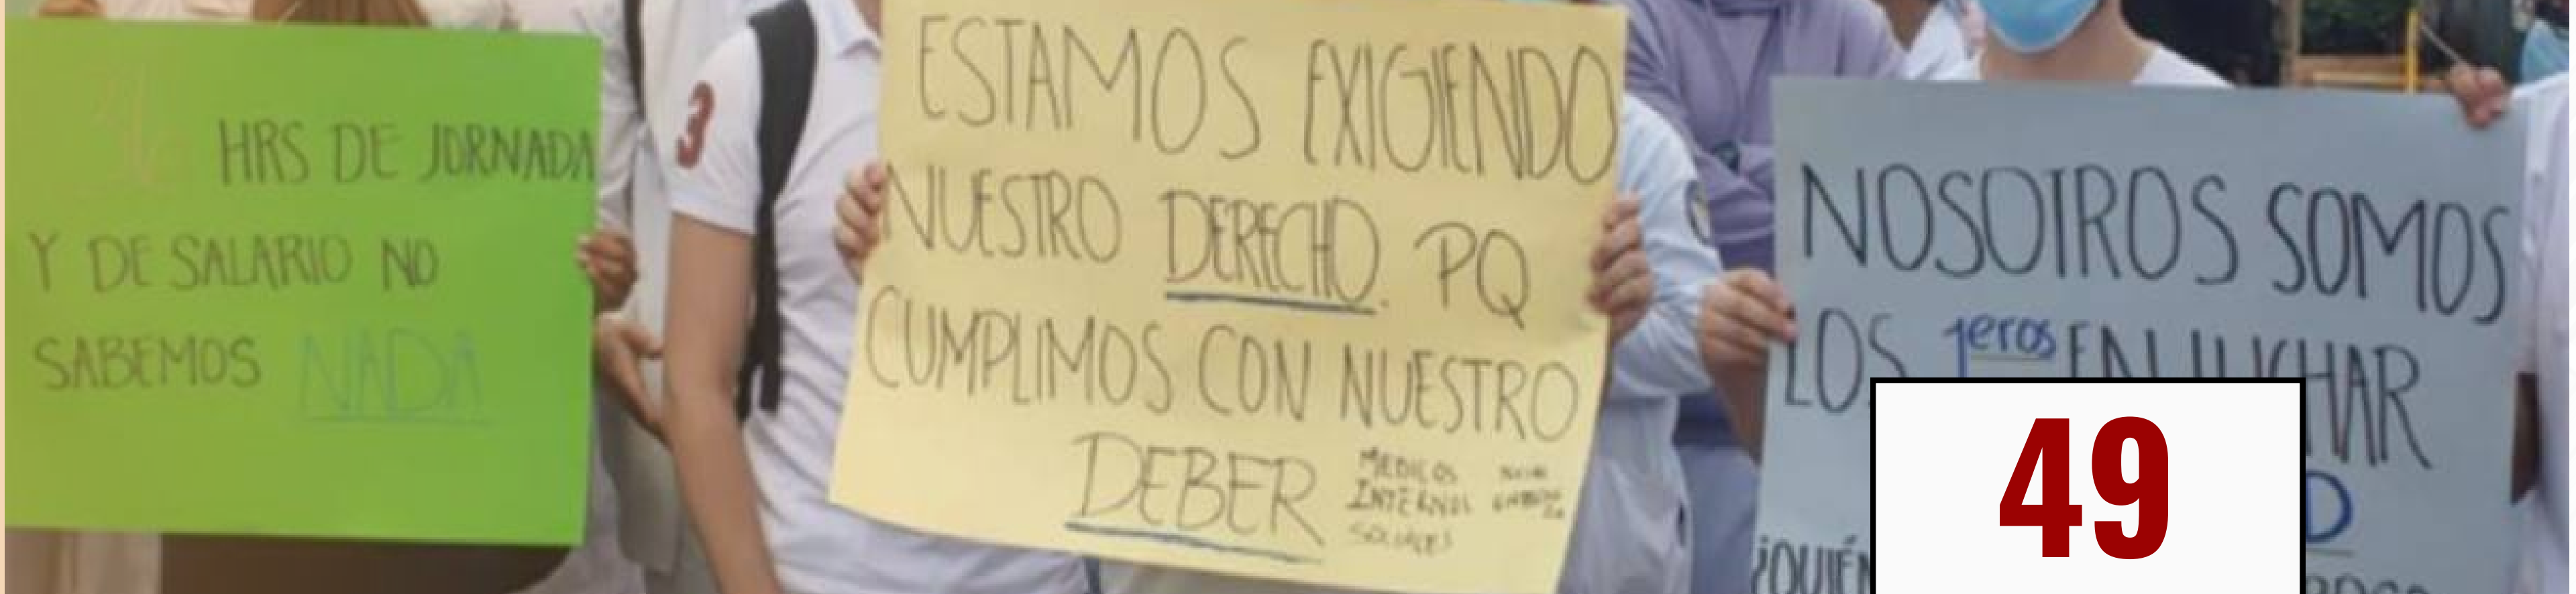 36 HRS DE JORNADA
Y DE SALARIO NO
SABEMOS NADA
3
ESTAMOS EXIGIENDO
NUESTRO DERECHO. PQ
CUMPLIMOS CON NUESTRO
DEBER
MEDICOS
INTERNOS
SOCIALES
NOSOTROS SOMOS
LOS 1eros EN LUCHAR
¿QUIÉN
49